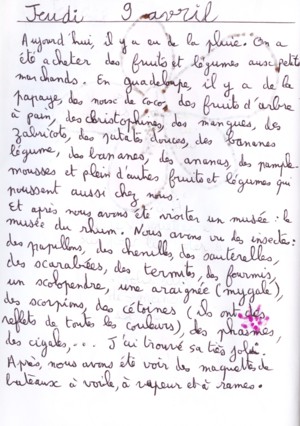 Jeudi 9 avril
Aujourd'hui, il y a eu de la pluie. On a
été acheter des fruits et légumes aux petits
marchands. En guadeloupe, il y a de la
papaye, des noix de coco, des fruits d'arbre
à pain, des christophines, des mangues, des
zabricots, des patates douces, des bananes
légume, des bananes, des ananas, des pample-
mousses et plein d'autres fruits et légumes qui
poussent aussi chez nous.
Et après nous avons été visiter un musée : le
musée du rhum. Nous avons vu des insectes :
des papillons, des chenilles, des sauterelles,
des scarabées, des termites, des fourmis,
un scolopendre, une araignée (mygale),
des scorpions, des cétoines (ils ont des
reflets de toutes les couleurs), des phasmes,
des cigales, ... J'ai trouvé sa très joli.
Après, nous avons été voir des maquettes de
bateaux à voile, à vapeur et à rames.